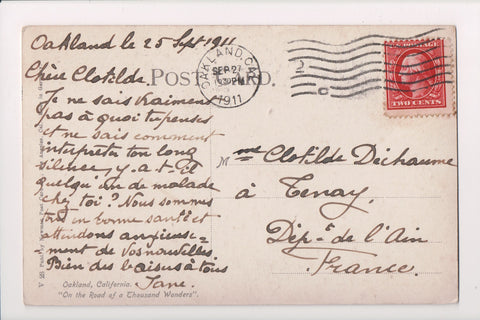 Oakland le 25 Sept 1911
Chère Clotilde
POST CARD.
Je ne sais vraiment
pas à quoi tu penses
et ne sais comment
interpréter ton long
silence, y, a-t-il
quelqu'un de malade
chez toi ? Nous sommes
tous en bonne santé et
attendons anxieuse=
ment de vos nouvelles
Bien des baisers à tous
Jane.
Oakland, California.
"On the Road of a Thousand Wonders".
OAKLAND, CAL.
SEP 2
30 PM
1911
2
C
TWO CENTS
Mme Clotilde Déchaume
à Tenay.
Dépt de l'Ain
France.